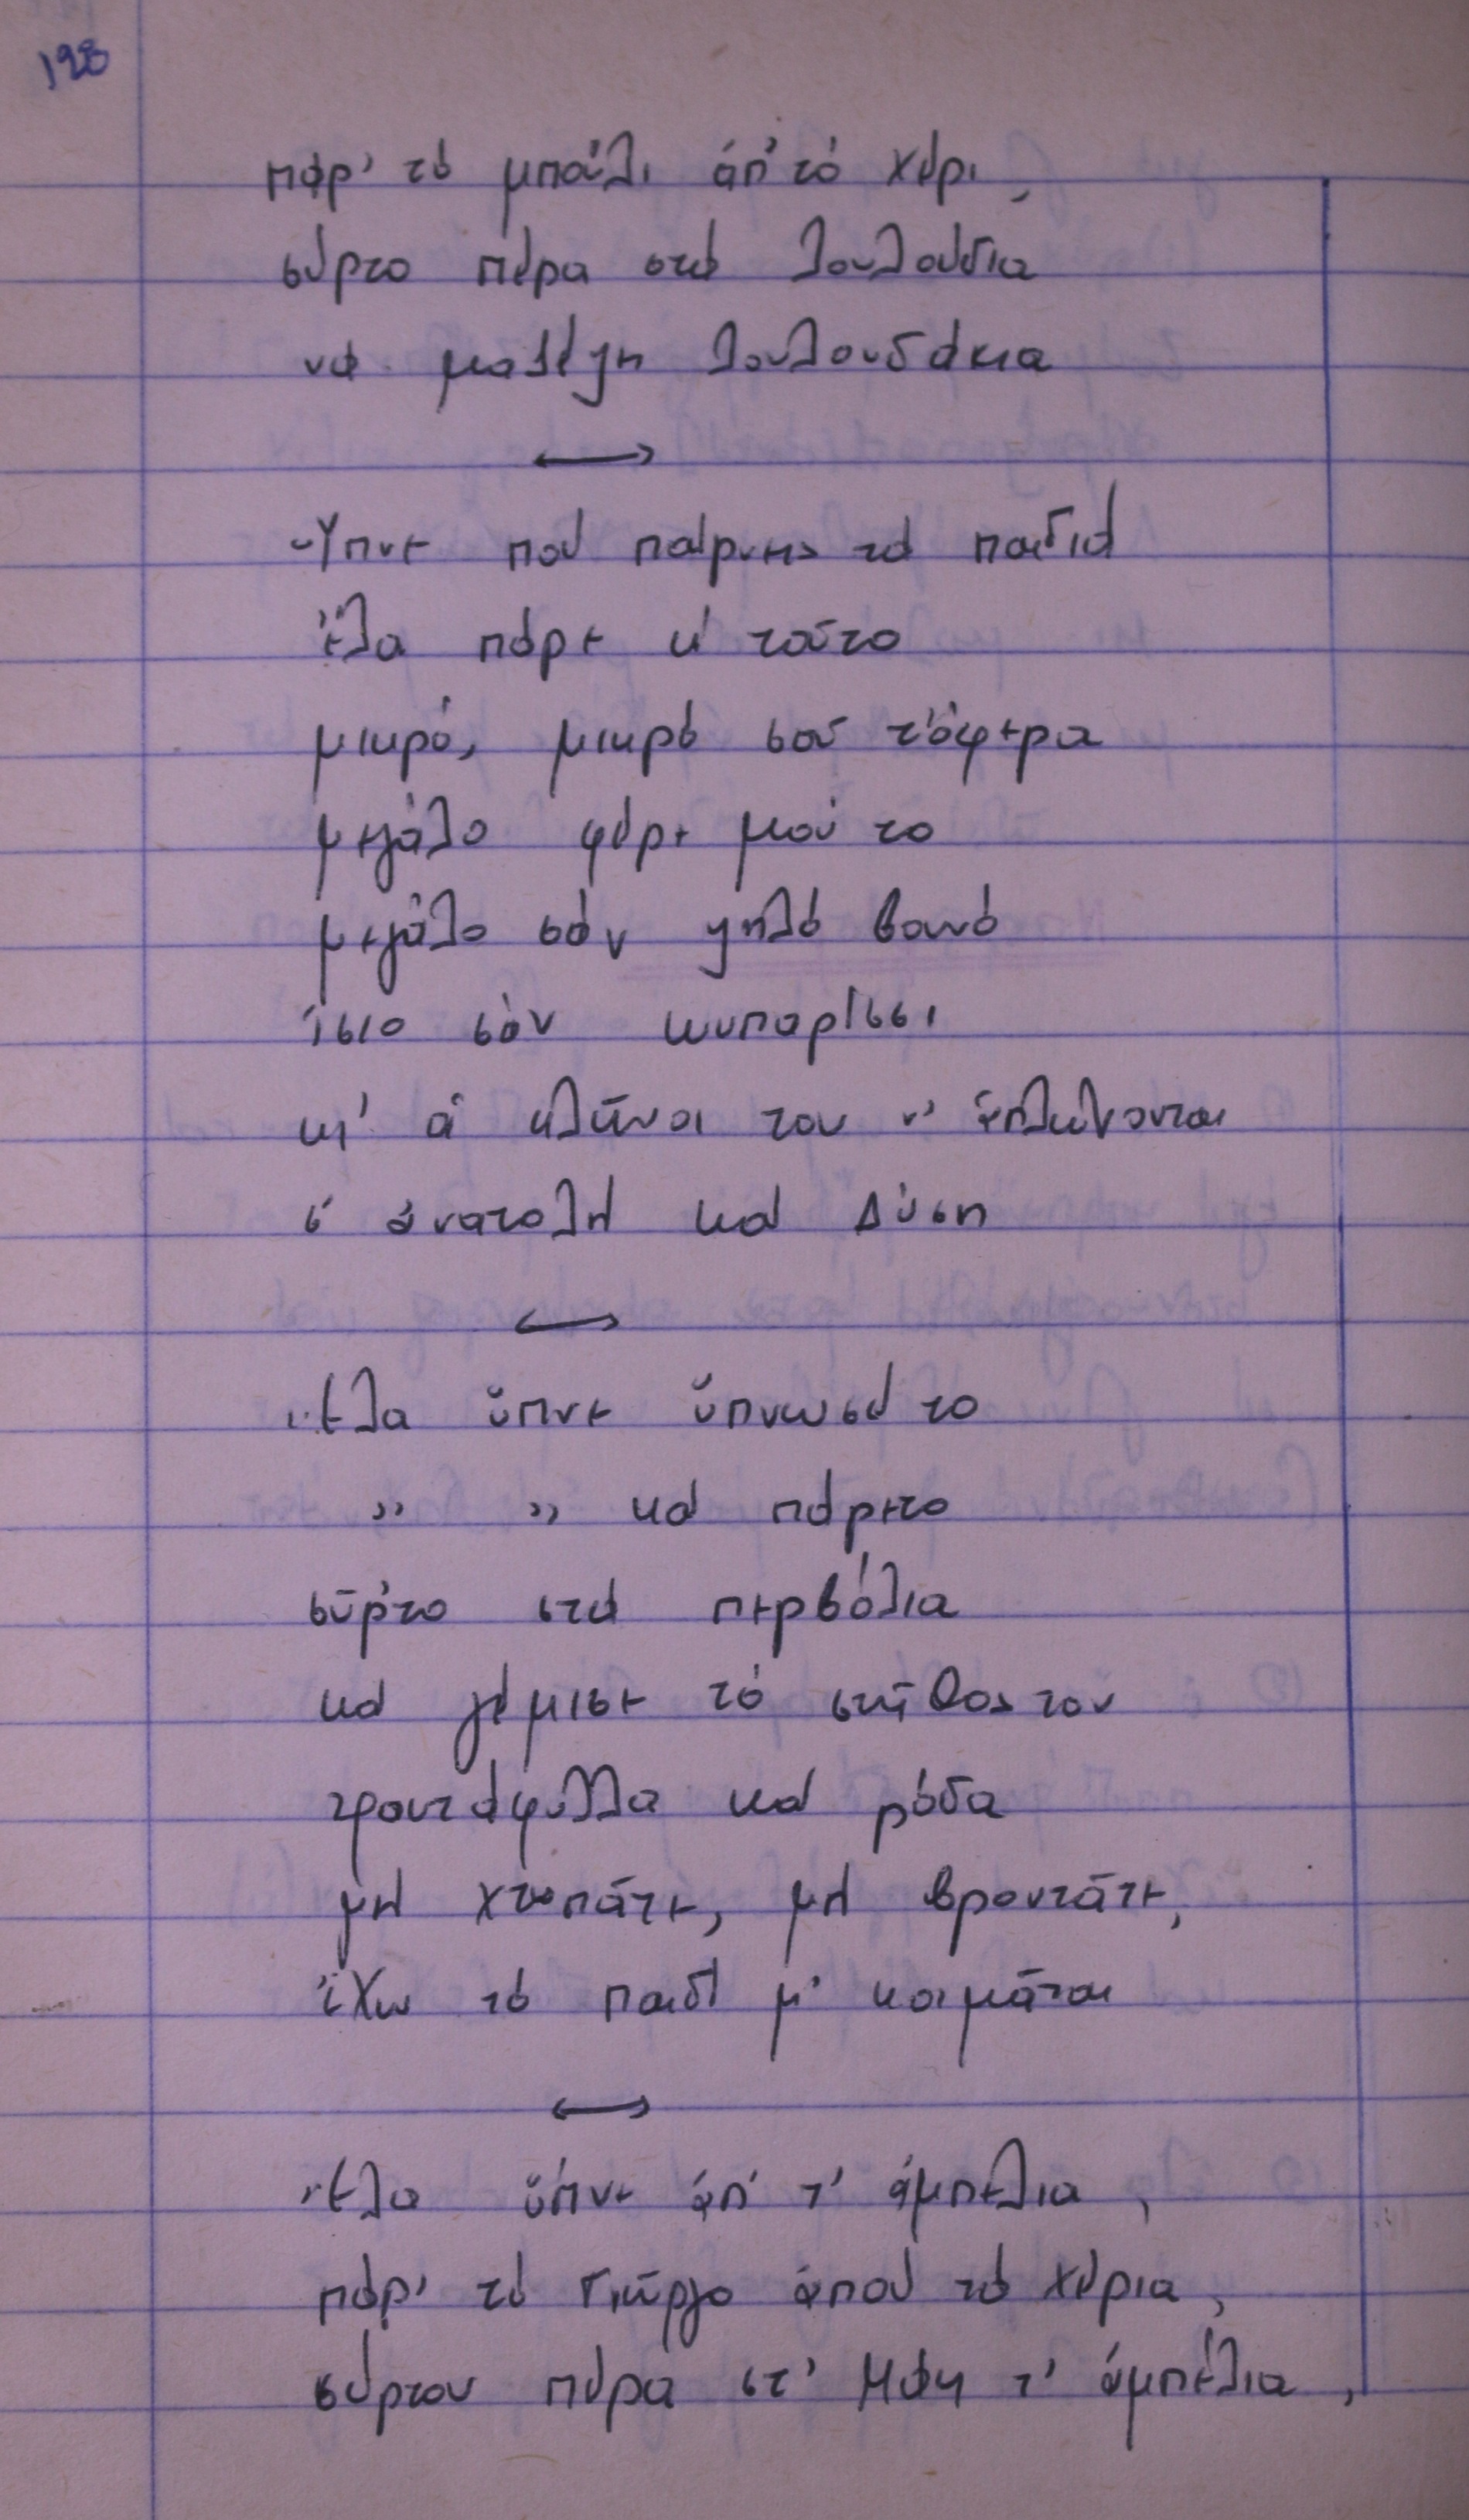 128
πάρ' τό μπαΐλι ἀπ' τό χέρι,
σύρτο πέρα στά λουλούδια
νά μαζέψη λουλουδάκια
Ὕπνε πού παίρνεις τά παιδιά
ἔλα πάρε κι' τοῦτο
μικρό, μικρό σοῦ τὄφερα
μεγάλο φέρε μού το
μεγάλο σάν ψηλό βουνό
ἴσιο σάν κυπαρίσσι
κι' οἱ κλῶνοι του ν' ἁπλώνονται
σ' ἀνατολή καί Δύση
Ἔλα ὕπνε ὕπνωσέ το
〃 〃 καί πάρετο
σῦρ'το στά περβόλια
καί γέμισε τό στῆθος του
τραντάφυλλα καί ρόδα
μή χτυπᾶτε, μή βροντᾶτε,
ἔχω τό παιδί μ' κοιμᾶται
Ἔλα ὕπνε ἀπ' τ' ἀμπέλια,
πάρ' τό Γιῶργο ἀπού τά χέρια,
σύρτου πέρα στ' τ' ἀμπέλια,